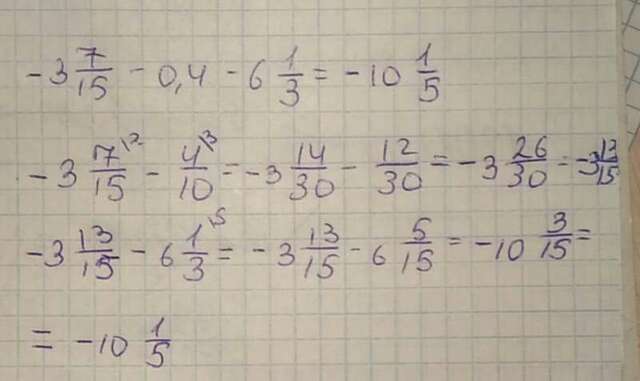 -3 7/15 - 0,4 - 6 1/3 = -10 1/5
-3 7/15 \2 - 4/10 \3 = -3 14/30 - 12/30 = -3 26/30 = -3 13/15
-3 13/15 - 6 1/3 \5 = -3 13/15 - 6 5/15 = -10 3/15 =
= -10 1/5